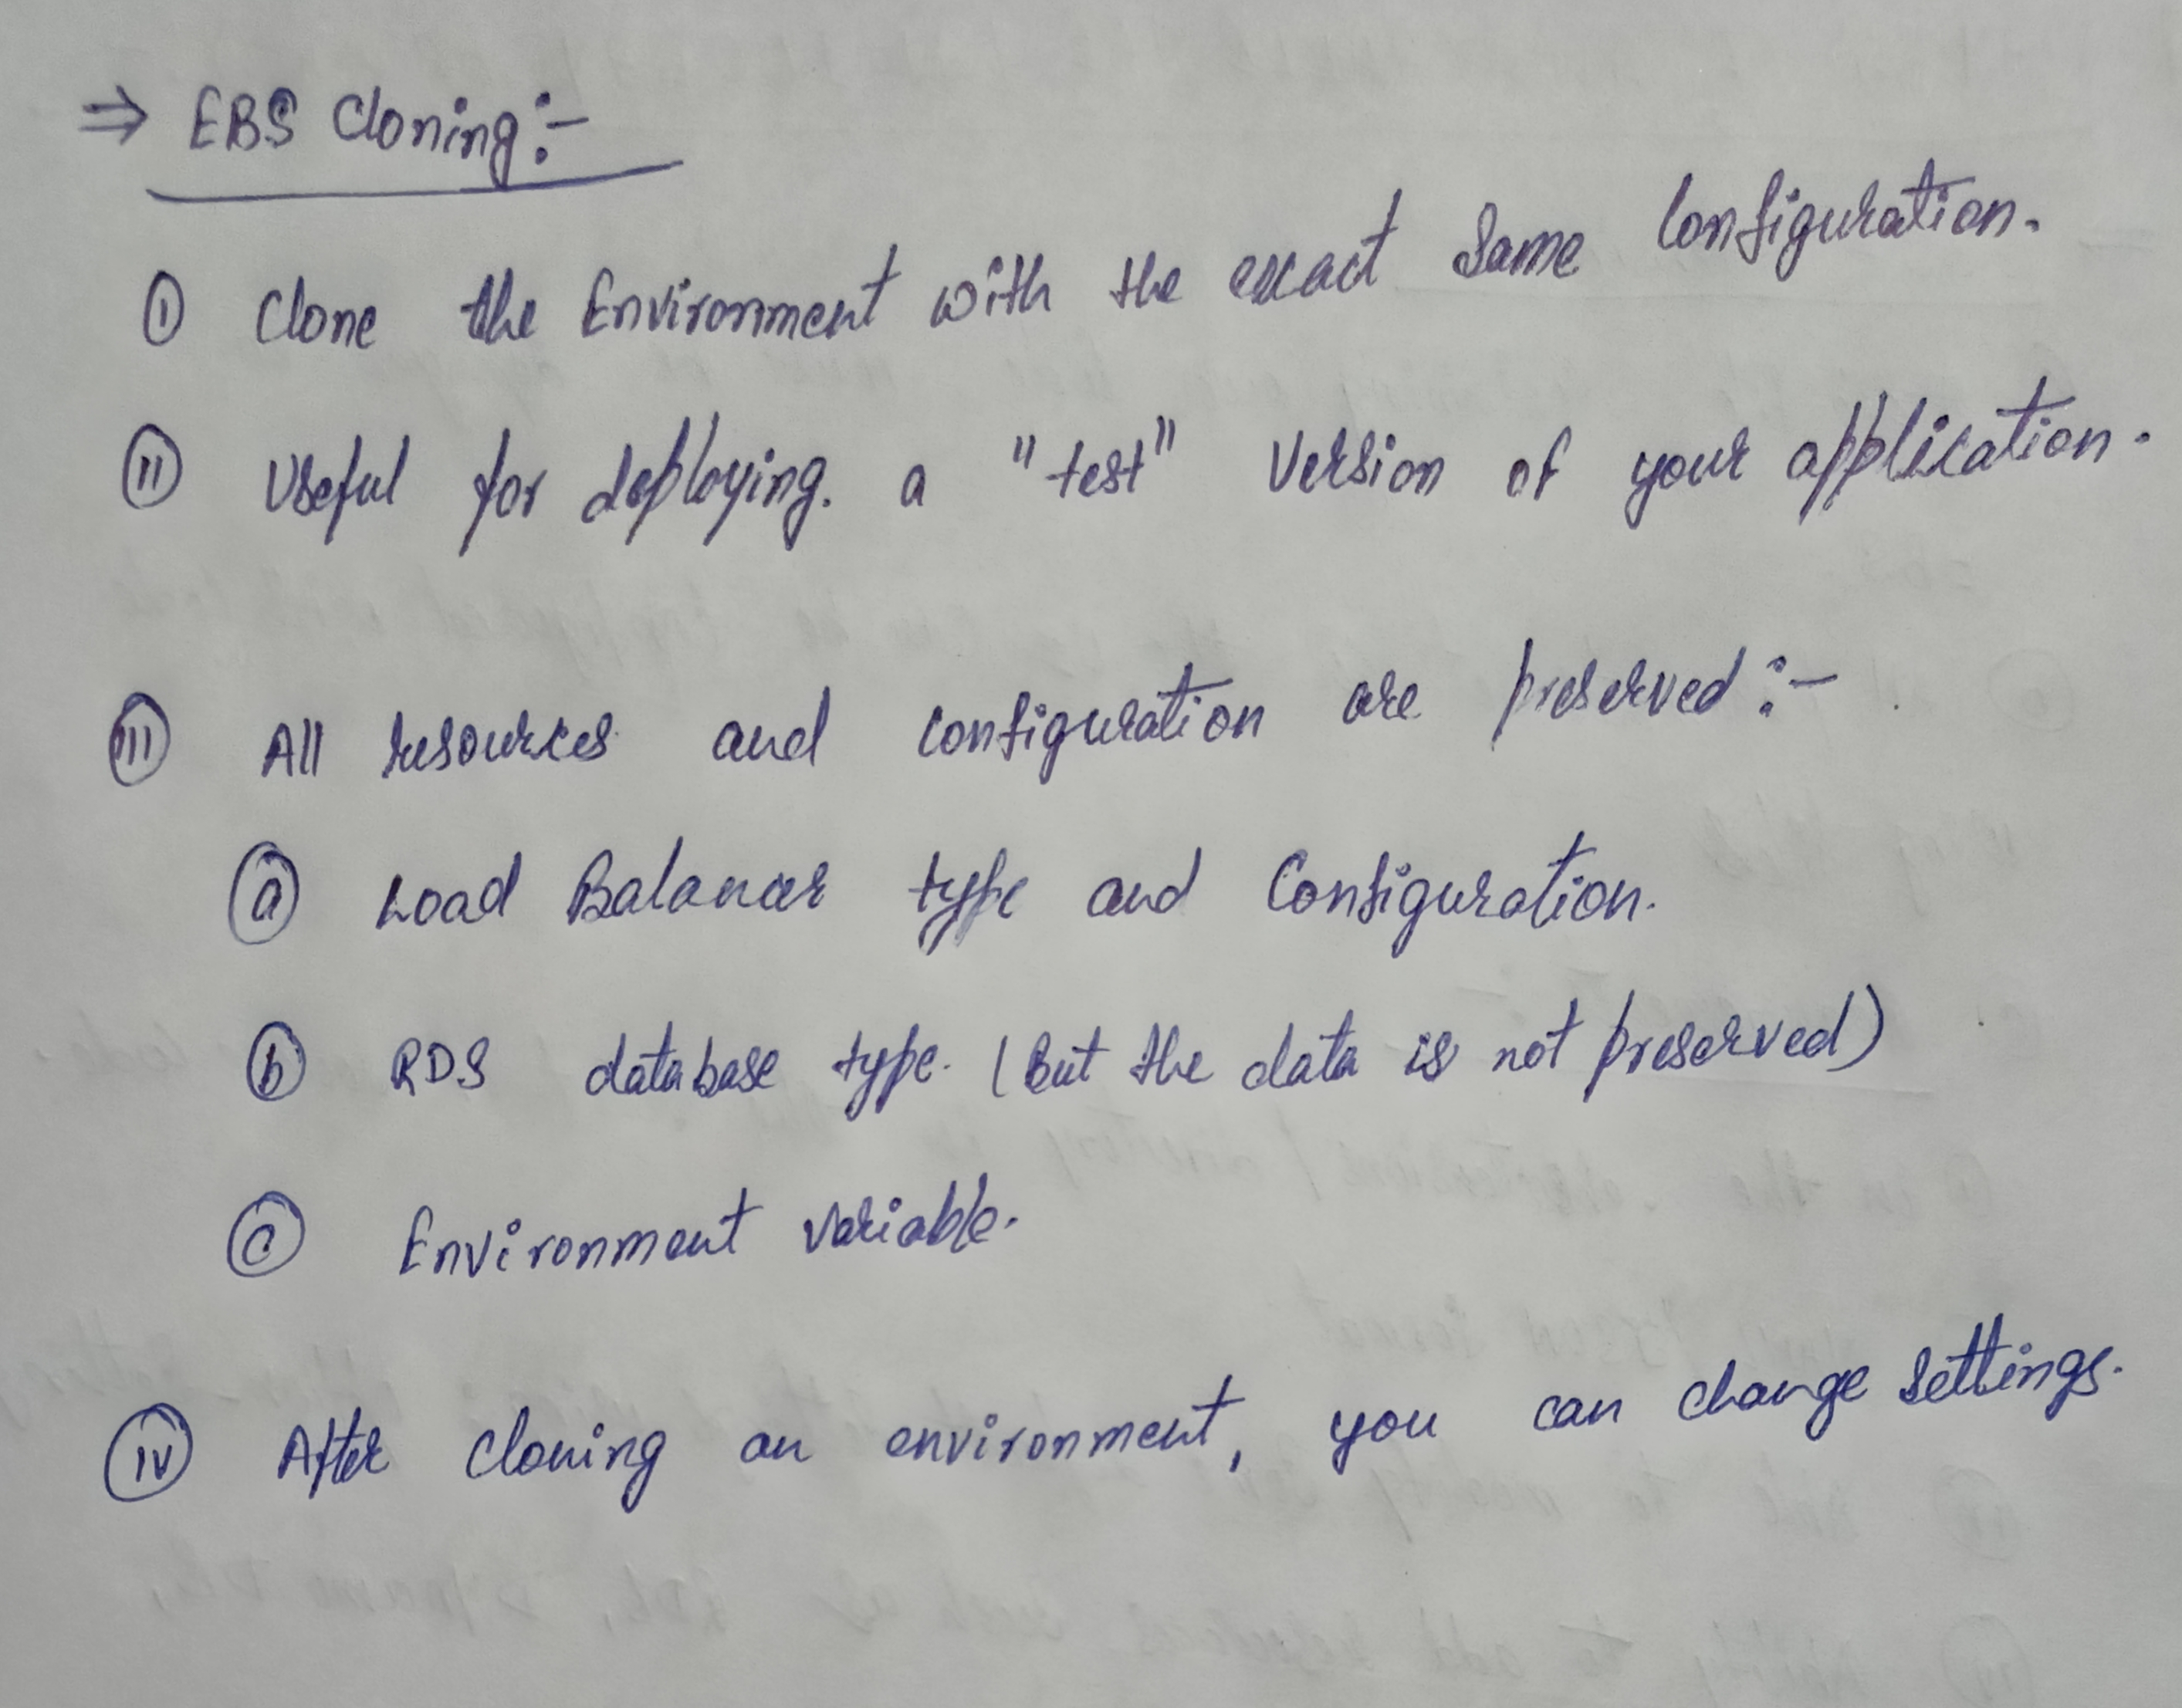 ⇒ EBS Cloning:-
(i) Clone the Environment with the exact Same Configuration.
(ii) Useful for deploying. a "test" Version of your application.
(iii) All resources and configuration are preserved:-
(a) Load Balancer type and Configuration.
(b) RDS database type. (But the data is not preserved)
(c) Environment variable.
(iv) After cloning an environment, you can change settings.